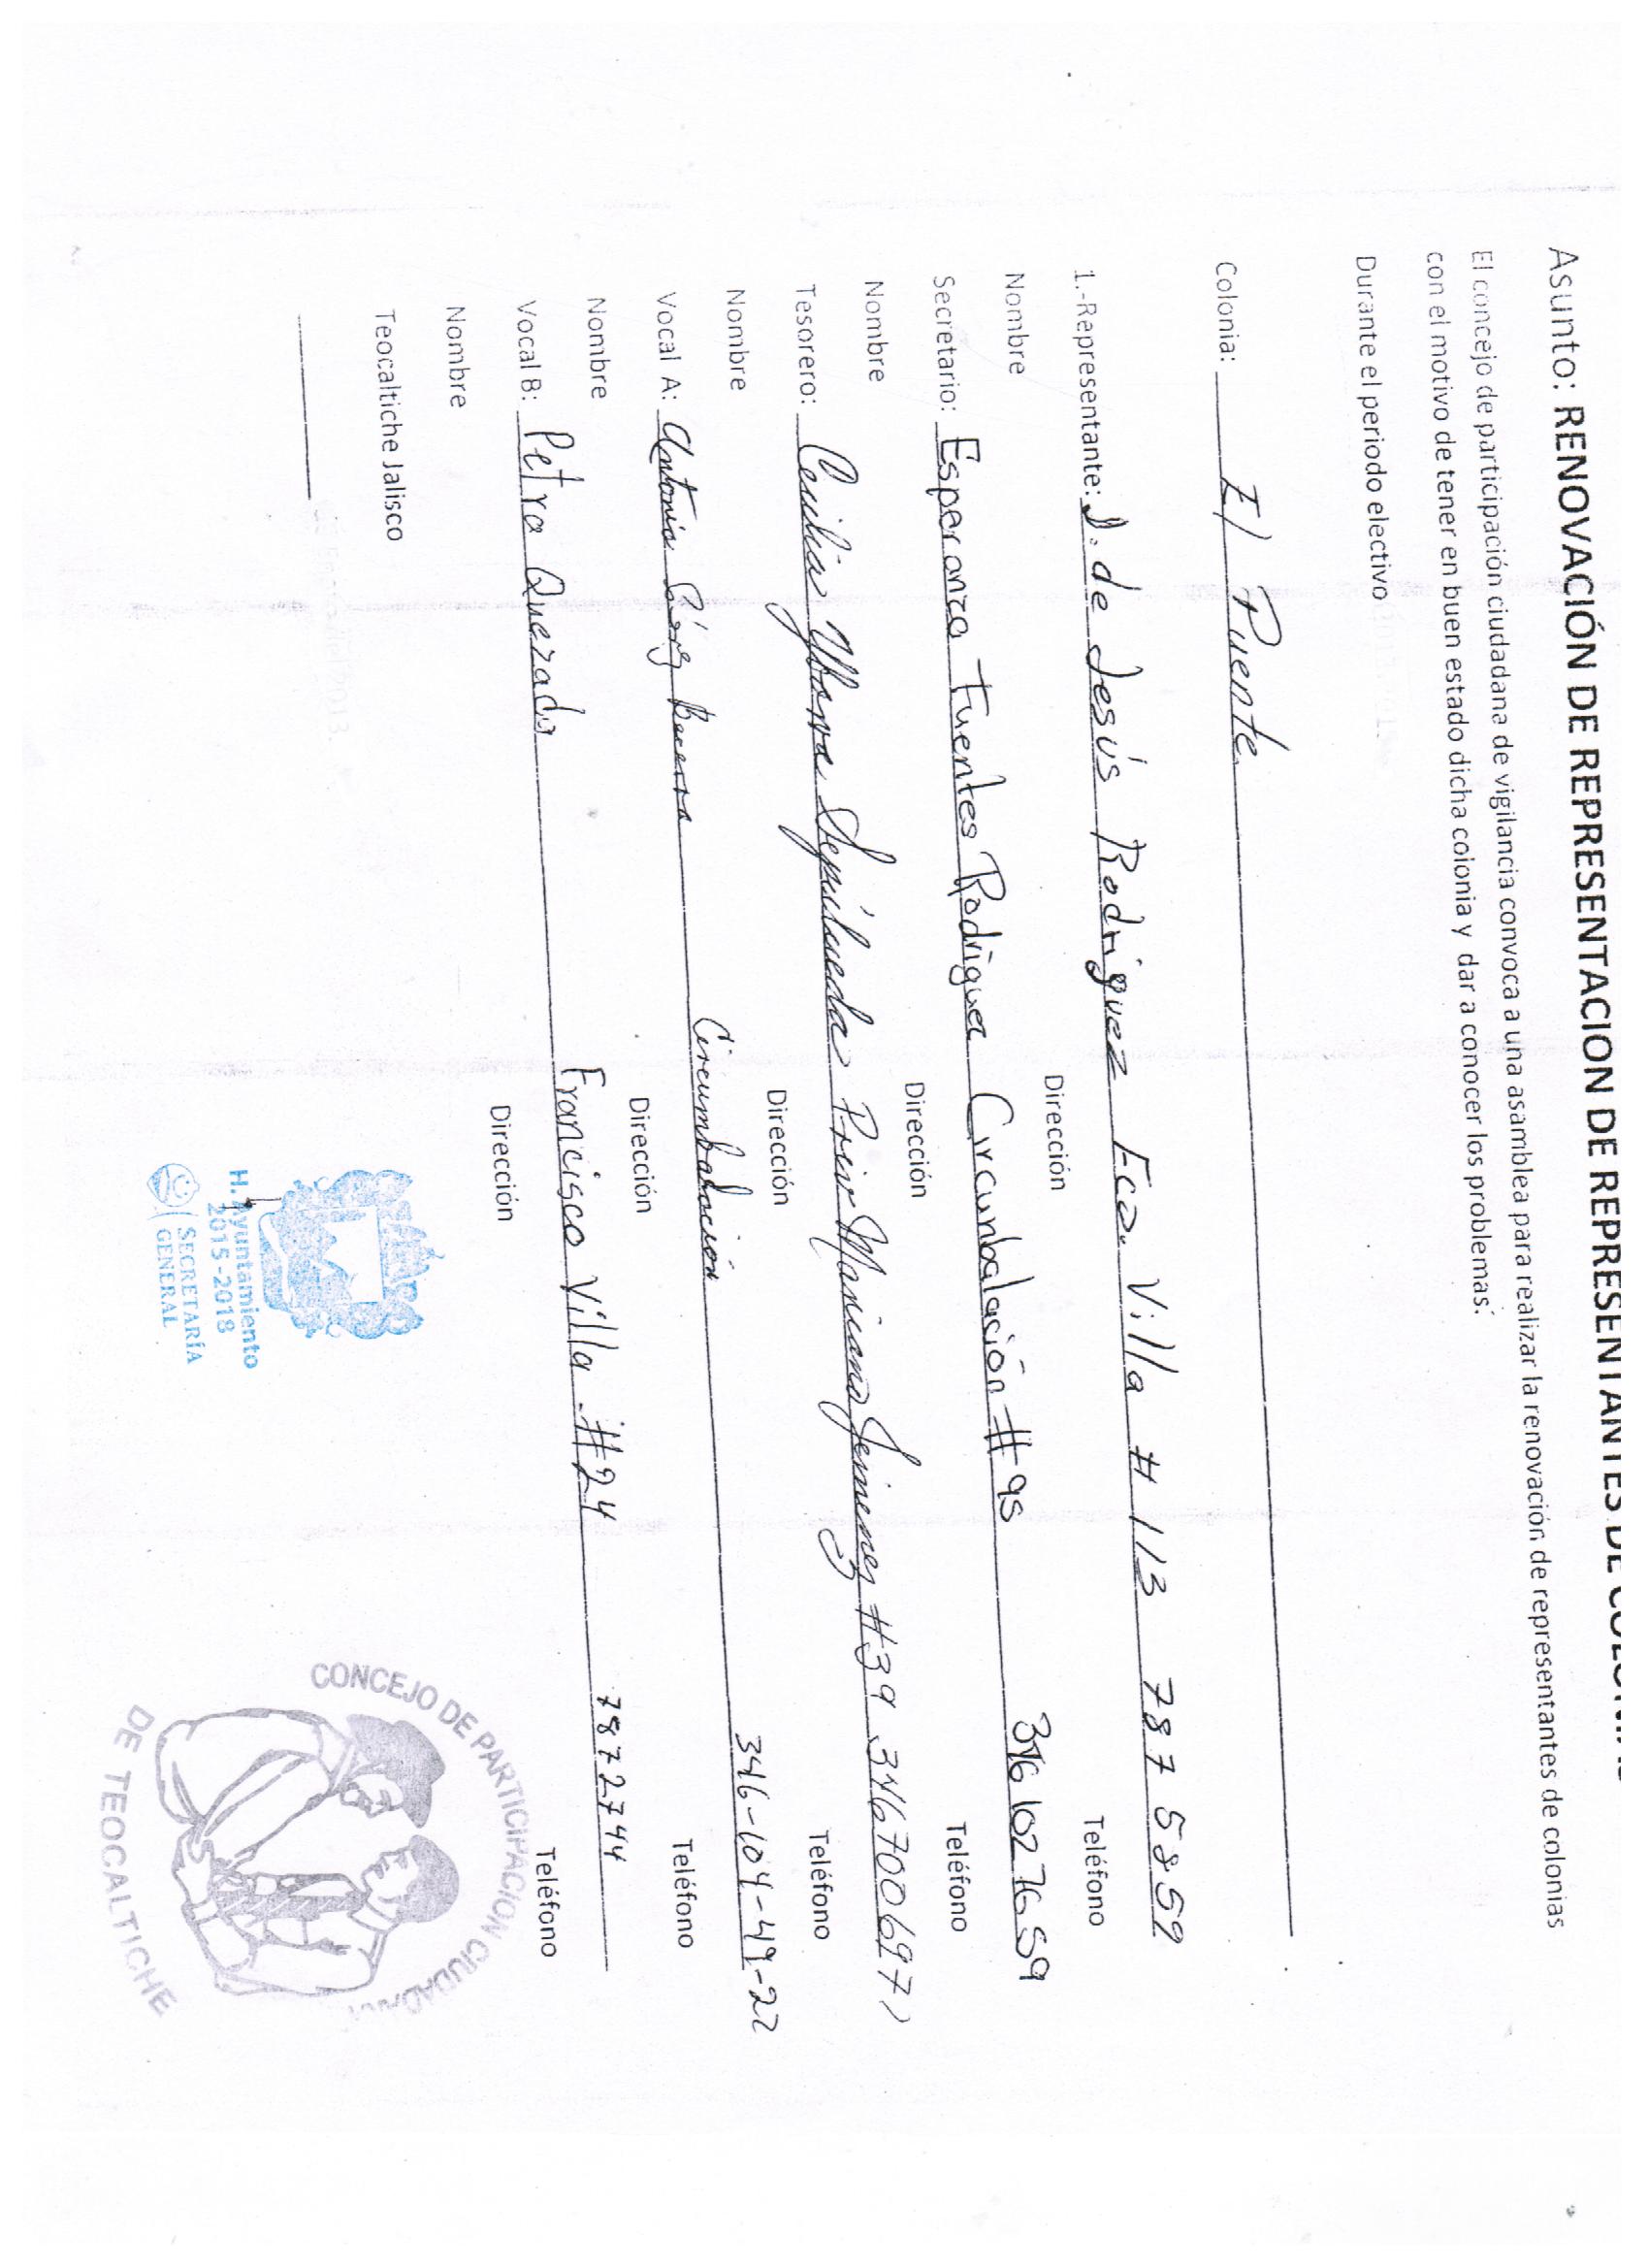 Asunto: RENOVACIÓN DE REPRESENTACION DE REPRESENTANTES DE COLONIAS
El concejo de participación ciudadana de vigilancia convoca a una asamblea para realizar la renovación de representantes de colonias
con el motivo de tener en buen estado dicha colonia y dar a conocer los problemas.
Durante el periodo electivo
Colonia: El Puente
1.-Representante: J. de Jesús Rodriguez Fco. Villa #113 787 5859
Nombre Dirección Teléfono
Secretario: Esperanza Fuentes Rodríguez Circunbalación #95 346 102 76 59
Nombre Dirección Teléfono
Tesorero: Cecilia Sepúlveda Priv Mariano Jimenez #39 3467006977
Nombre Dirección Teléfono
Vocal A: Antonia Becerra Circumbalación 346-104-49-22
Nombre Dirección Teléfono
Vocal B: Petra Quezada Francisco Villa #24 7872744
Nombre Dirección Teléfono
Teocaltiche Jalisco
H. Ayuntamiento
2015-2018
SECRETARÍA
GENERAL
CONCEJO DE PARTICIPACION CIUDADANA
DE TEOCALTICHE